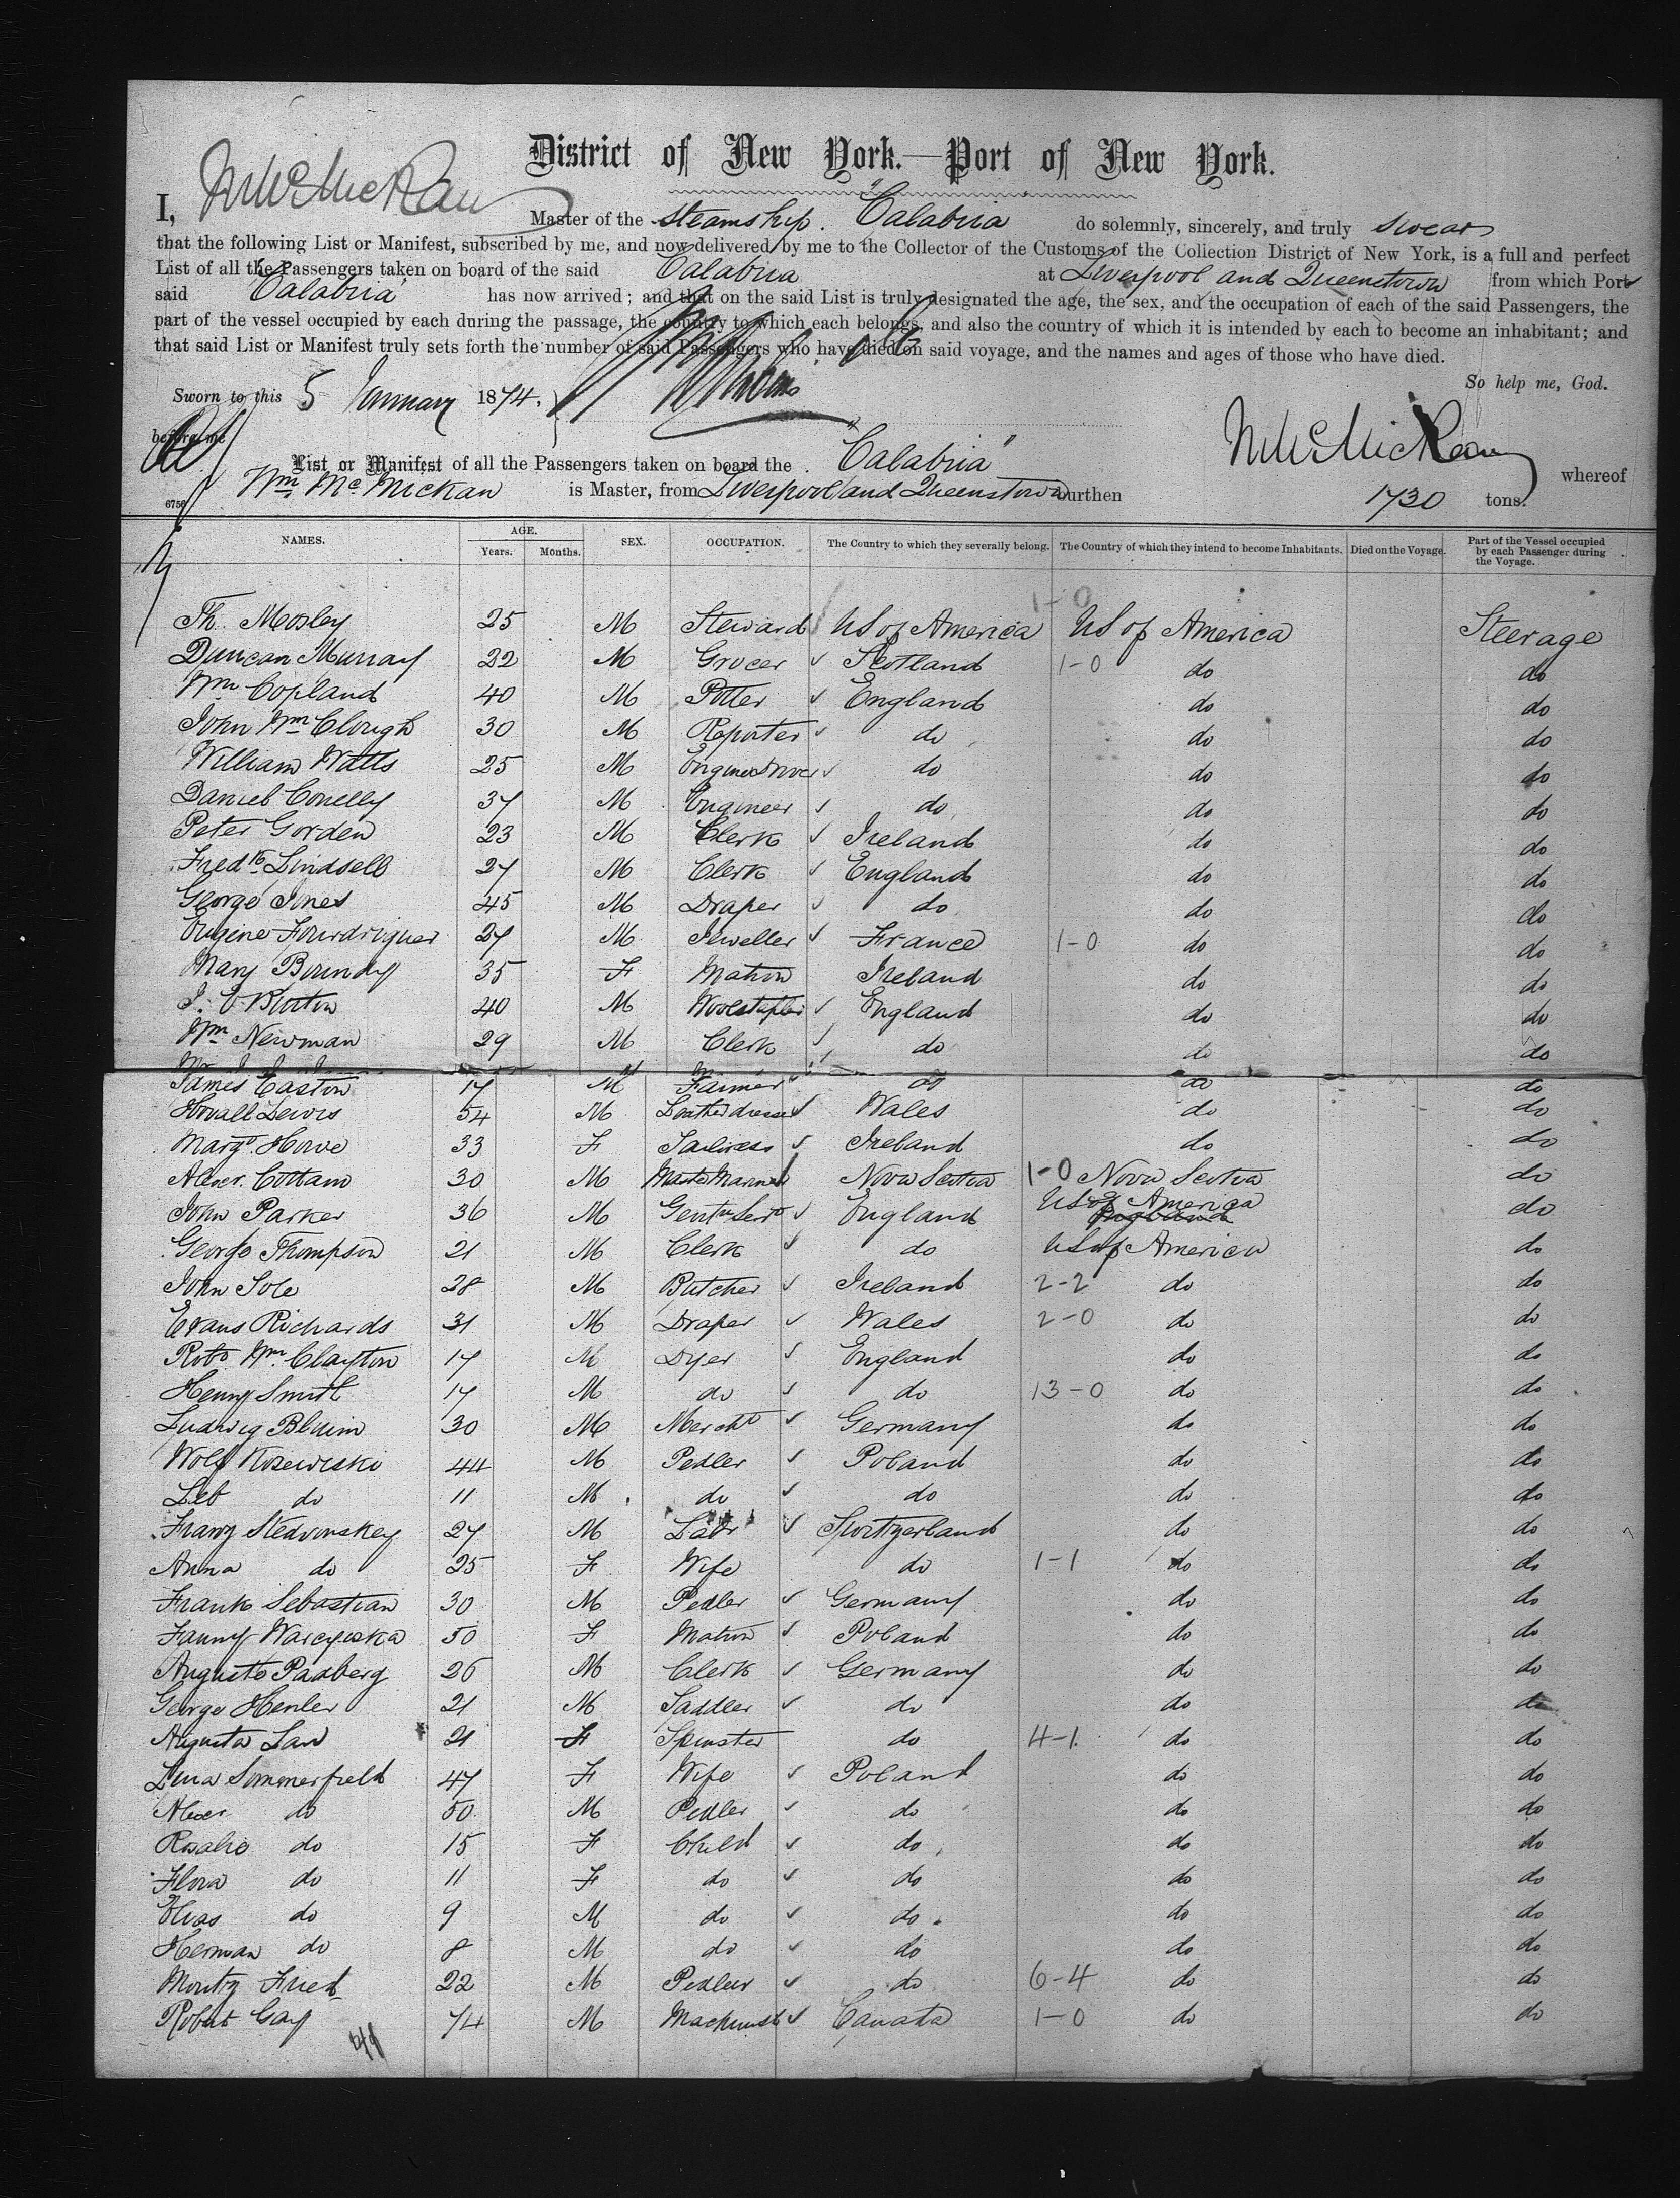 District of New York.—Port of New York.
I, Wm McMickan Master of the steamship "Calabria" do solemnly, sincerely, and truly swear
that the following List or Manifest, subscribed by me, and now delivered by me to the Collector of the Customs of the Collection District of New York, is a full and perfect
List of all the Passengers taken on board of the said Calabria at Liverpool and Queenstown from which Ports
said "Calabria" has now arrived; and that on the said List is truly designated the age, the sex, and the occupation of each of the said Passengers, the
part of the vessel occupied by each during the passage, the country to which each belongs, and also the country of which it is intended by each to become an inhabitant; and
that said List or Manifest truly sets forth the number of said Passengers who have died on said voyage, and the names and ages of those who have died.
So help me, God.
Sworn to this 5 January 1874.
before me
Wm McMickan
List or Manifest of all the Passengers taken on board the "Calabria" whereof
Wm McMickan is Master, from Liverpool and Queenstown burthen 1730 tons.
6756
NAMES. AGE. Years. Months. SEX. OCCUPATION. The Country to which they severally belong. The Country of which they intend to become Inhabitants. Died on the Voyage. Part of the Vessel occupied by each Passenger during the Voyage.
1-0
Th. Mosley 25 M Steward US of America US of America Steerage
Duncan Murray 22 M Grocer Scotland 1-0 do do
Wm Copland 40 M Potter England do do
John Wm Clough 30 M Reporter do do do
William Watts 25 M Engine Driver do do do
Daniel Conelly 37 M Engineer do do do
Peter Gorden 23 M Clerk Ireland do do
Fredk Lindsell 27 M Clerk England do do
George Jones 45 M Draper do do do
Eugene Fourdrignier 27 M Jeweller France 1-0 do do
Mary Boundy 35 F Matron Ireland do do
J. C. Blorton 40 M Woolstapler England do do
Wm Newman 29 M Clerk do do do
James Easton 17 M Farmer do do do
Howall Lewis 54 M Leather dresser Wales do do
Margt Howe 33 F Tailoress Ireland do do
Alexr. Cottam 30 M Master Mariner Nova Scotia 1-0 Nova Scotia do
John Parker 36 M Gentn Servt England US of America do
George Thompson 21 M Clerk do US of America do
John Sole 28 M Butcher Ireland 2-2 do do
Evans Richards 31 M Draper Wales 2-0 do do
Robt Wm Clayton 17 M Dyer England do do
Henry Smith 17 M do do 13-0 do do
Ludwig Bluim 30 M Mercht Germany do do
Wolf Kosewiski 44 M Pedler Poland do do
Leb do 11 M do do do do
Franz Stedronskey 27 M Labr Switzerland do do
Anna do 25 F Wife do 1-1 do do
Frank Sebastian 30 M Pedler Germany do do
Fanny Warcyuska 50 F Matron Poland do do
Auguste Padberg 26 M Clerk Germany do do
George Henler 21 M Saddler do do do
Augusta Law 21 F Spinster do 4-1. do do
Lina Sommerfield 47 F Wife Poland do do
Alexr do 50 M Pedler do do do
Rosalie do 15 F Child do do do
Flora do 11 F do do do do
Elias do 9 M do do do do
Herman do 8 M do do do do
Moritz Fried 22 M Pedler do 6-4 do do
Robert Gay 74 M Machinist Canada 1-0 do do